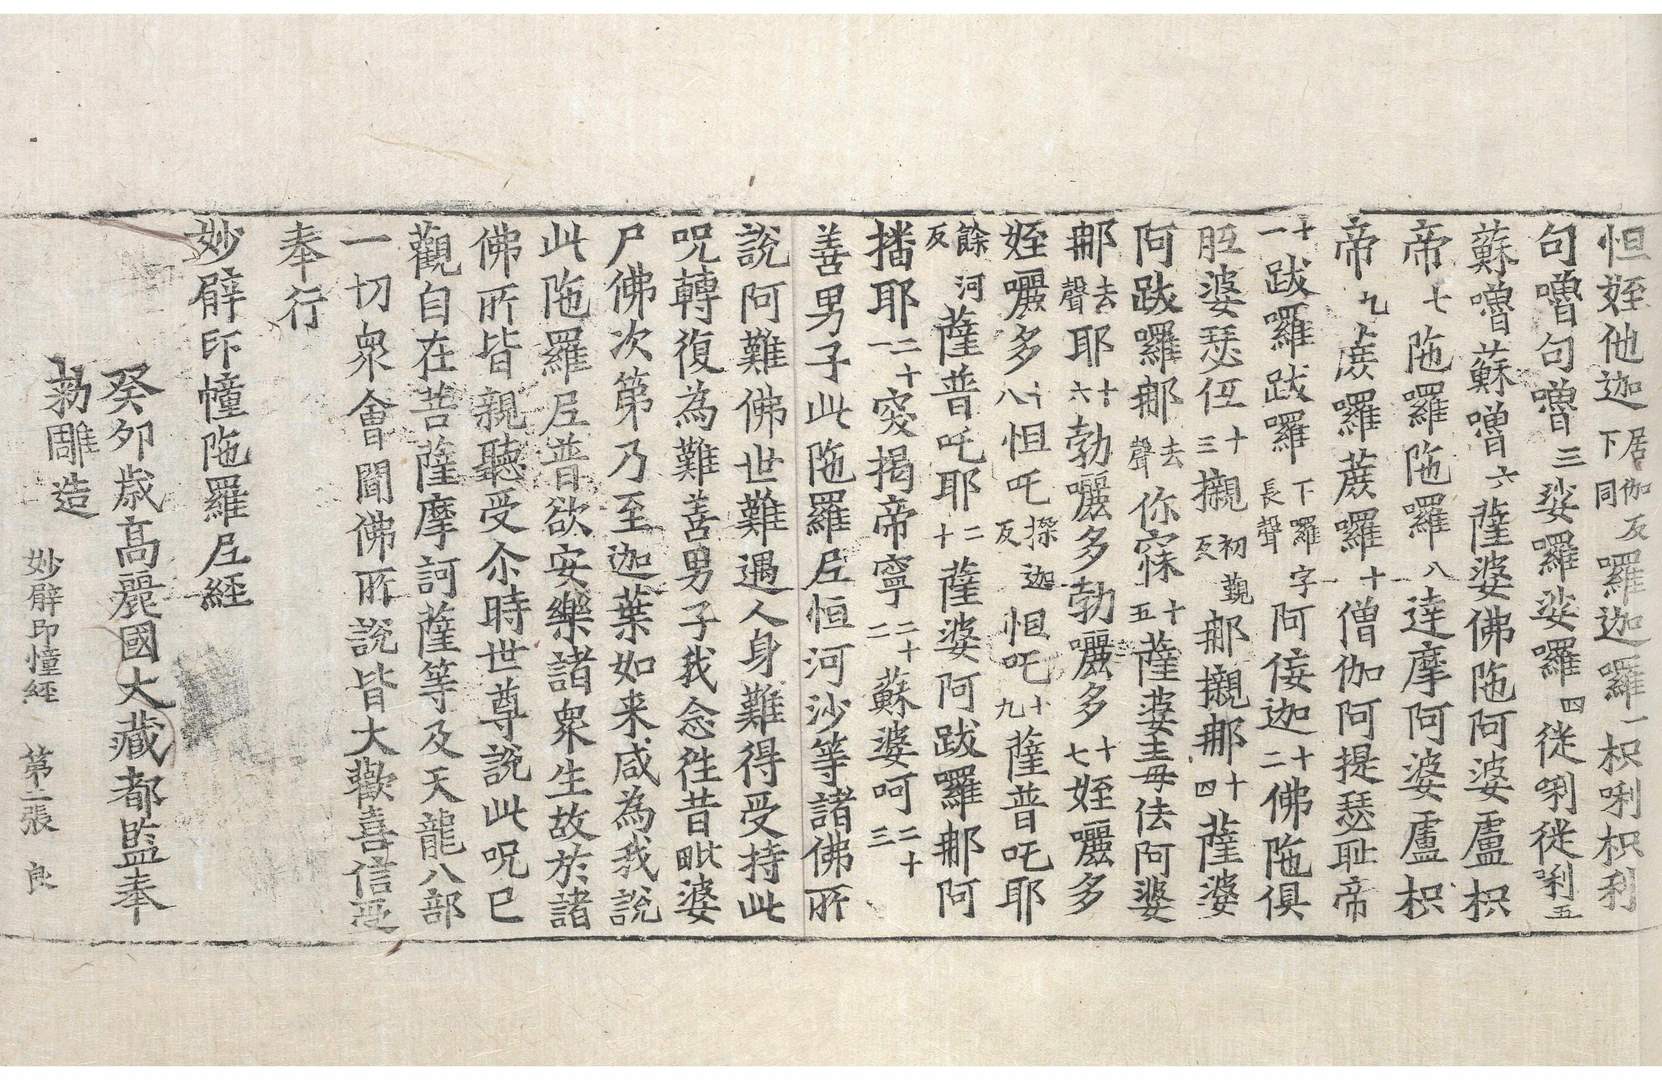 怛姪他迦居伽反下同羅迦羅一枳唎枳利
句嚕句嚕三娑囉娑囉四徙唎徙唎五
蘇嚕蘇嚕六薩婆佛陁阿婆盧枳
帝七陁羅陁羅八達摩阿婆盧枳
帝九蔖囉蔖囉十僧伽阿提瑟耻帝
十一跋羅跋囉下羅字長聲阿佞迦十二佛陁俱
胝婆瑟㑚十三襯初覲反那襯那十四薩婆
阿跋囉那去聲你寐十五薩婆毒佉阿婆
那去聲耶十六勃囇多勃囇多十七姪囇多
姪囇多十八怛吒搩迦反怛吒十九薩普吒耶
薩普吒耶二十薩婆阿跋羅那阿
播耶二十一窣揭帝寧二十二蘇婆呵二十三
善男子此陁羅尼恒河沙等諸佛所
說阿難佛世難遇人身難得受持此
呪轉復為難善男子我念往昔毗婆
尸佛次第乃至迦葉如来咸為我說
此陁羅尼普欲安樂諸衆生故於諸
佛所皆親聽受尒時世尊說此呪已
觀自在菩薩摩訶薩等及天龍八部
一切衆會聞佛所說皆大歡喜信受
奉行
妙臂印幢陁羅尼経
癸卯歳高麗國大藏都監奉
勑雕造
妙臂印幢経 第二張 良